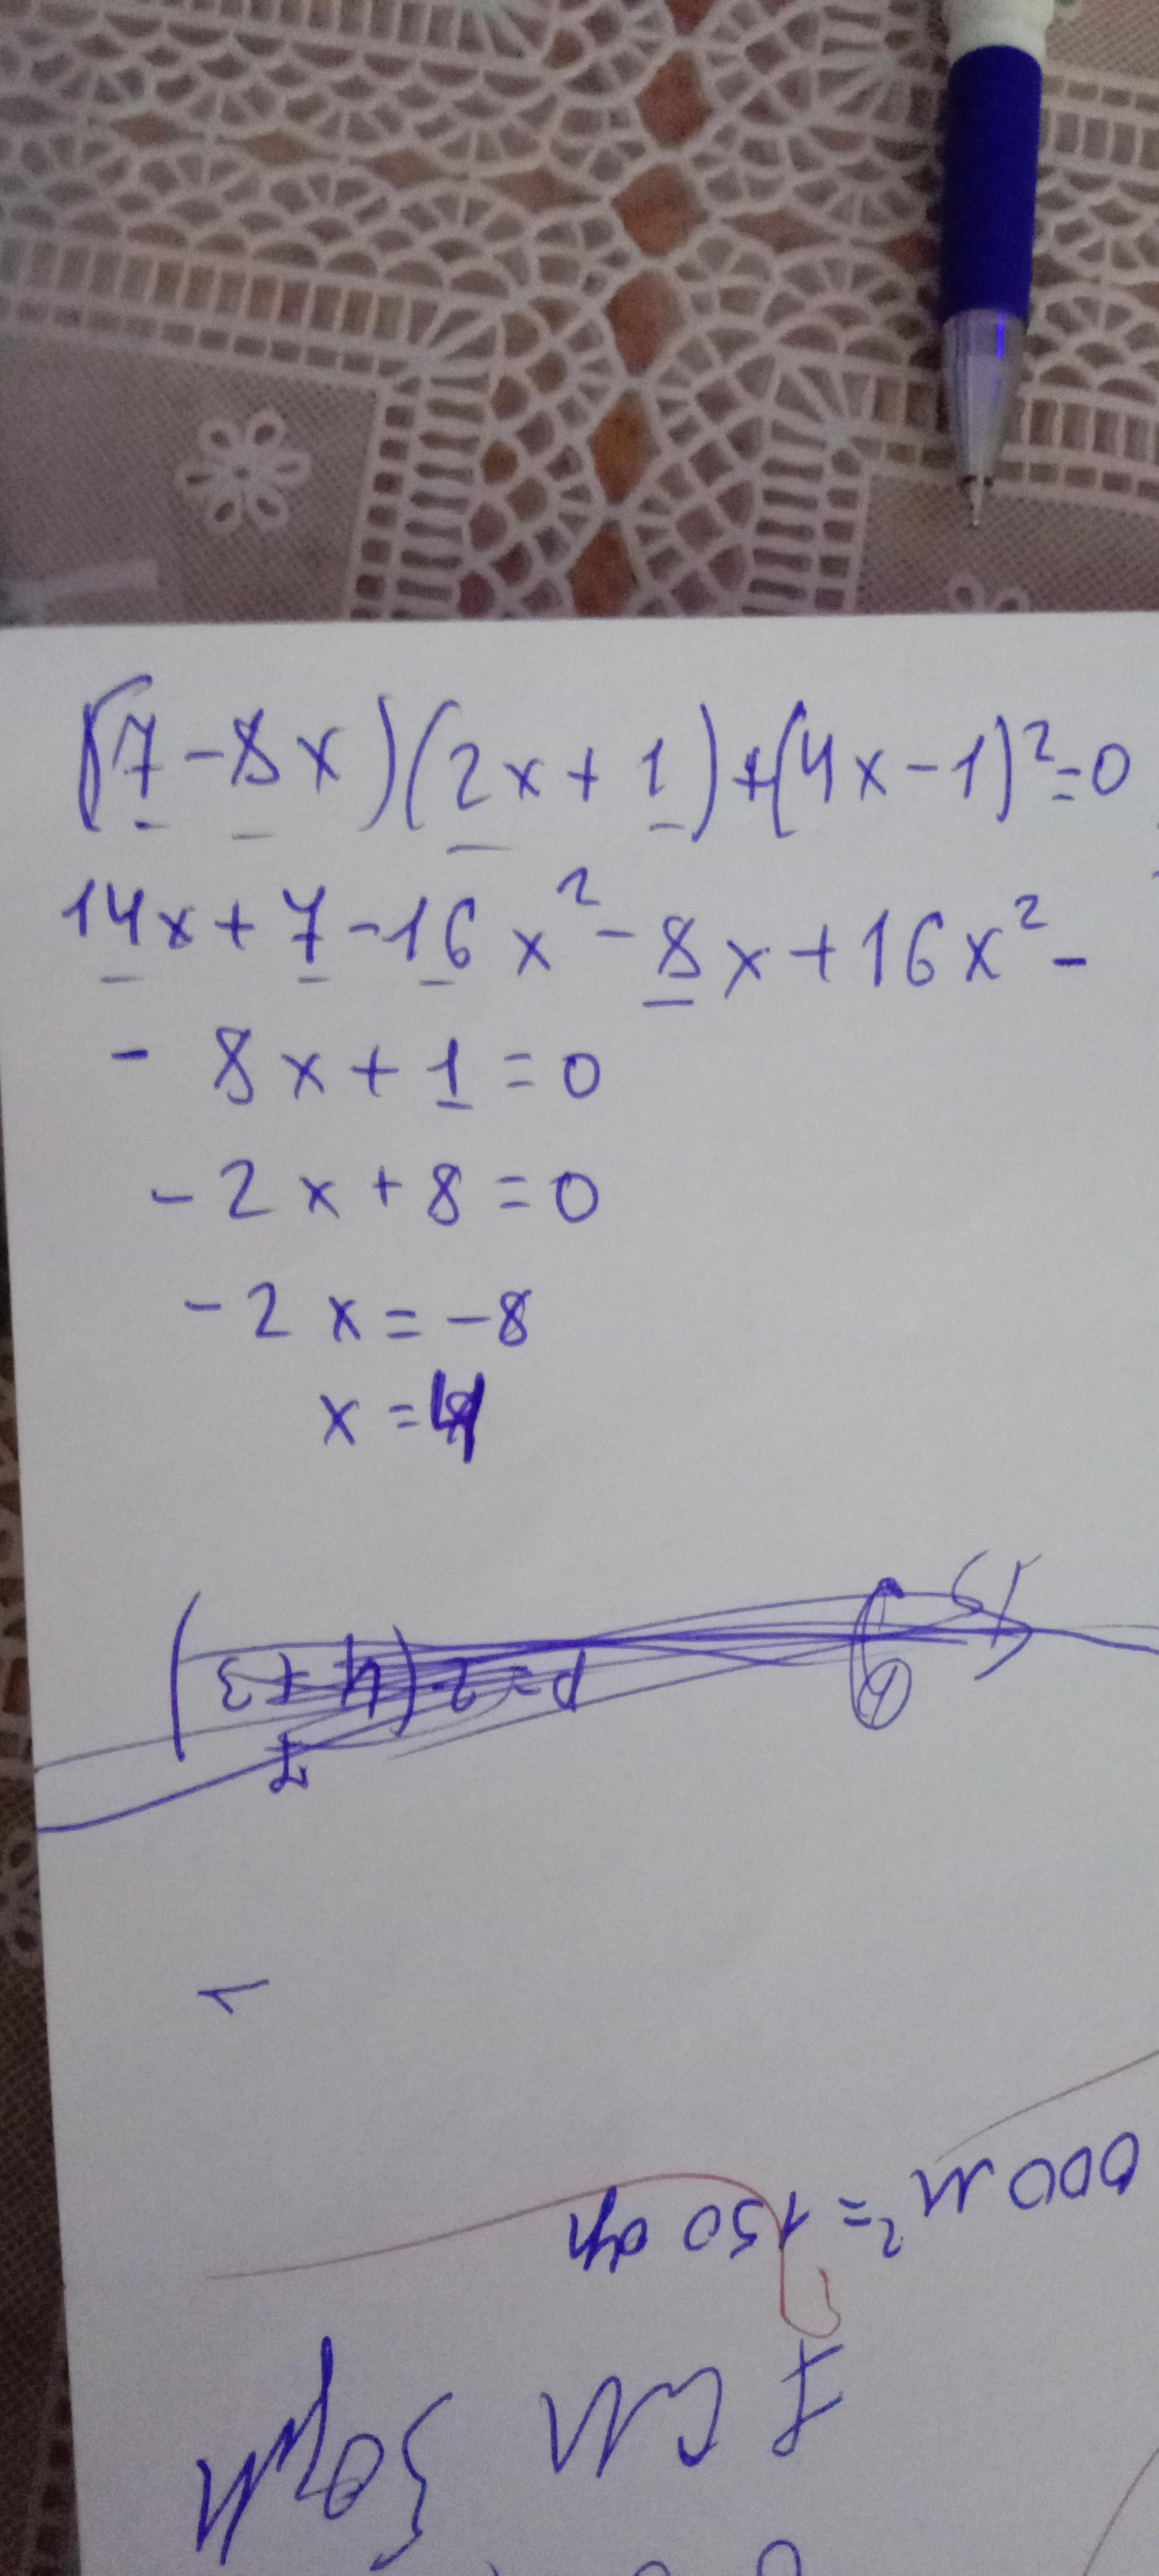 (7-8x)(2x+1)+(4x-1)²=0
14x+7-16x²-8x+16x²-
- 8x+1=0
-2x+8=0
-2x=-8
x=4
P=2·(4+3)
7
000м²=150
7 см